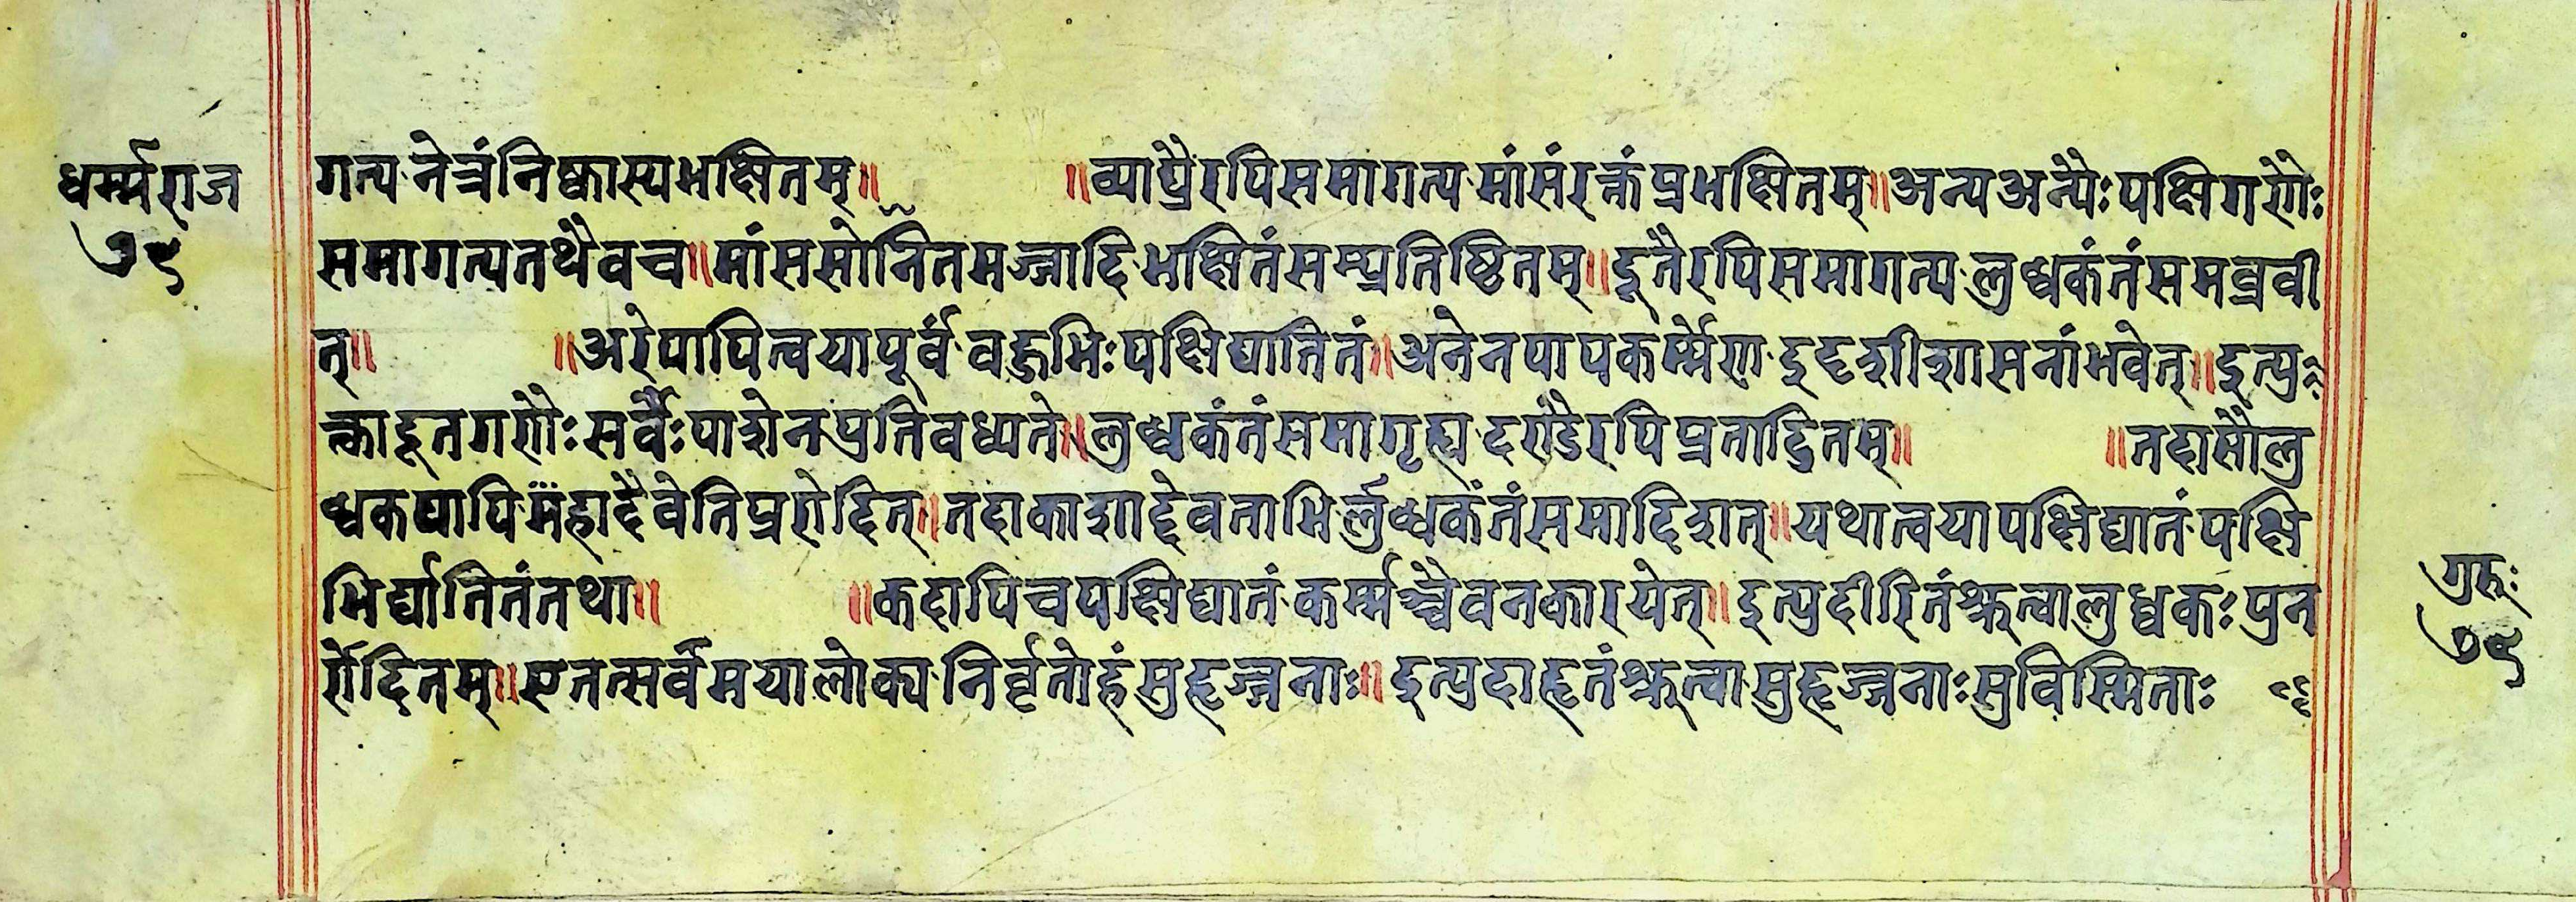 धर्म्मराज
७९
गत्य नेत्रं निष्कास्य भक्षितम्॥ ॥व्याघ्रैरपि समागत्य मांसं रक्तं प्रभक्षितम्॥अन्य अन्यैः पक्षिगणैः
समागत्य तथैव च॥मांससोनितमज्जादि भक्षितं सम्प्रतिष्ठितम्॥दूतैरपि समागत्य लुब्धकं तं समब्रवी
त्॥ ॥अरे पापि त्वया पूर्वं वहुभिः पक्षिघातितं॥अनेन पापकर्म्मेण इदृशी शासनां भवेत्॥इत्यु
क्ता दूतगणैः सर्वैः पाशेन प्रतिवध्यते॥लुब्धकं तं समागृह्य दण्डैरपि प्रताडितम्॥ ॥तदासौ लु
ब्धक पापि महादैवेति प्ररोदित्॥तदाकाशाद्देवताभिर्लुब्धकं तं समादिशत्॥यथा त्वया पक्षिघातं पक्षि
भिर्घातितं तथा॥ ॥कदापि च पक्षिघातं कर्म्मश्चैव न कारयेत्॥इत्युदीरितं श्रुत्वा लुब्धकः पुन
र्रोदितम्॥एतत्सर्वं मयालोक्य निर्वृतोहं सुहृज्जनाः॥ इत्युदाहृतं श्रुत्वा सुहृज्जनाः सुविस्मिताः
गुरुः
७९